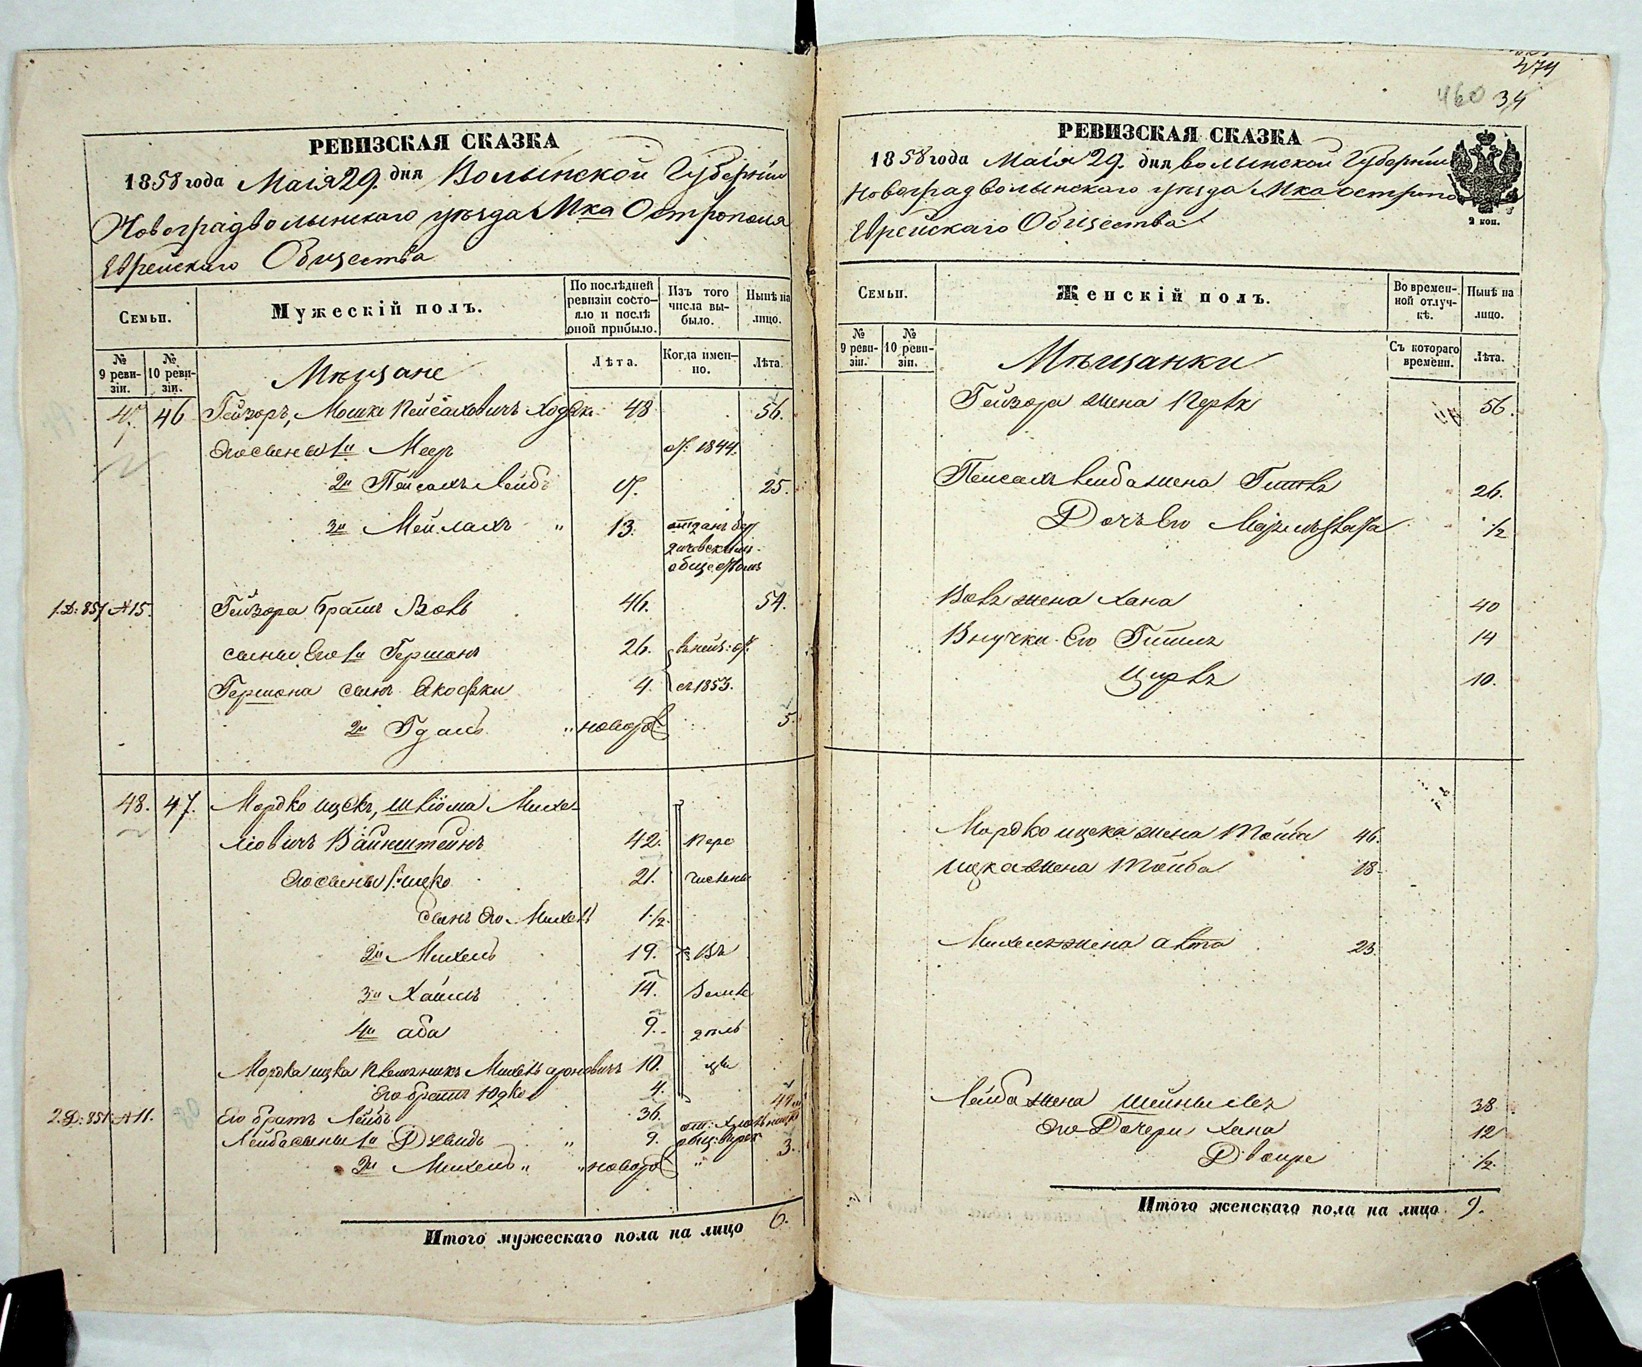 РЕВИЗСКАЯ СКАЗКА
1858 года Маія 29. дня Волынской Губерніи
Новоградволынскаго уѣзда Мка Острополя
Еврейскаго Общества
Семьи.
Мужескій полъ.
По послѣдней ревизіи состояло и послѣ оной прибыло.
Изъ того числа выбыло.
Нынѣ на лицо.
№ 9 ревизіи.
№ 10 ревизіи.
Мѣщане
Лѣта.
Когда именно.
Лѣта
47. 46 Гейзоръ, Мошко Пейсаховичъ 48 56.
Его сыны 1й Меер 1844.
2й Пейсахъ Лейбъ 17. 25.
3й Мейлахъ " 13. отданъ
обществомъ
1.Д: 857 №15. Гейзора братъ Вовъ 46. 54.
сыны Его 1й Гершонъ 26.
Гершона сынъ 4. съ 1853.
2й " новорож 5.
48. 47. Мордко Ицекъ, Шліома Михе-
ліовичъ Вайнштейнъ 42. Пере
Его сыны 1. Ицко 21. числены
сынъ Его Михель 1½
2й Михель 19. Въ
3й Хаимъ 14.
4й Аба 9.
Мордка Ицка племяникъ Михель Ароновичъ 10.
Его братъ Юдко 4.
2.Д: 857 №11. Его братъ Лейбъ 36. 44
Лейба сыны 1й Давидъ " 9.
2й Михель " " новорож " 3.
Итого мужескаго пола на лицо 6.
474
460 34
РЕВИЗСКАЯ СКАЗКА
1858 года Маія 29. дня Волынской Губерніи
Новоградволынскаго уѣзда Мка Острополя
Еврейскаго Общества
2 коп.
Семьи.
Женскій полъ.
Во временной отлучкѣ.
Нынѣ на лицо.
№ 9 ревизіи.
№ 10 ревизіи.
Мѣщанки
Съ котораго времени.
Лѣта.
Гейзора жена Перля 56.
Пейсахъ Лейба жена 26.
Дочь Его ½
Вовъ жена Хана 40
Внучки Его Гитля 14
10.
Мордко Ицека жена Тойба 46.
Ицка жена Тойба 18
Михеля жена 23.
Лейба жена 38
Его Дочери Хана 12
Двойра ½
Итого женскаго пола на лицо 9.